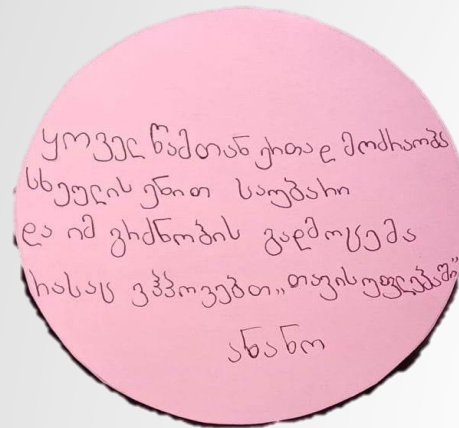 ყოველ წამთან ერთად მოძრაობა
სხეულის ენით საუბარი
და იმ გრძნობის გადმოცემა
რასაც ვჰპოვებთ „თავისუფლებაში"
ანანო